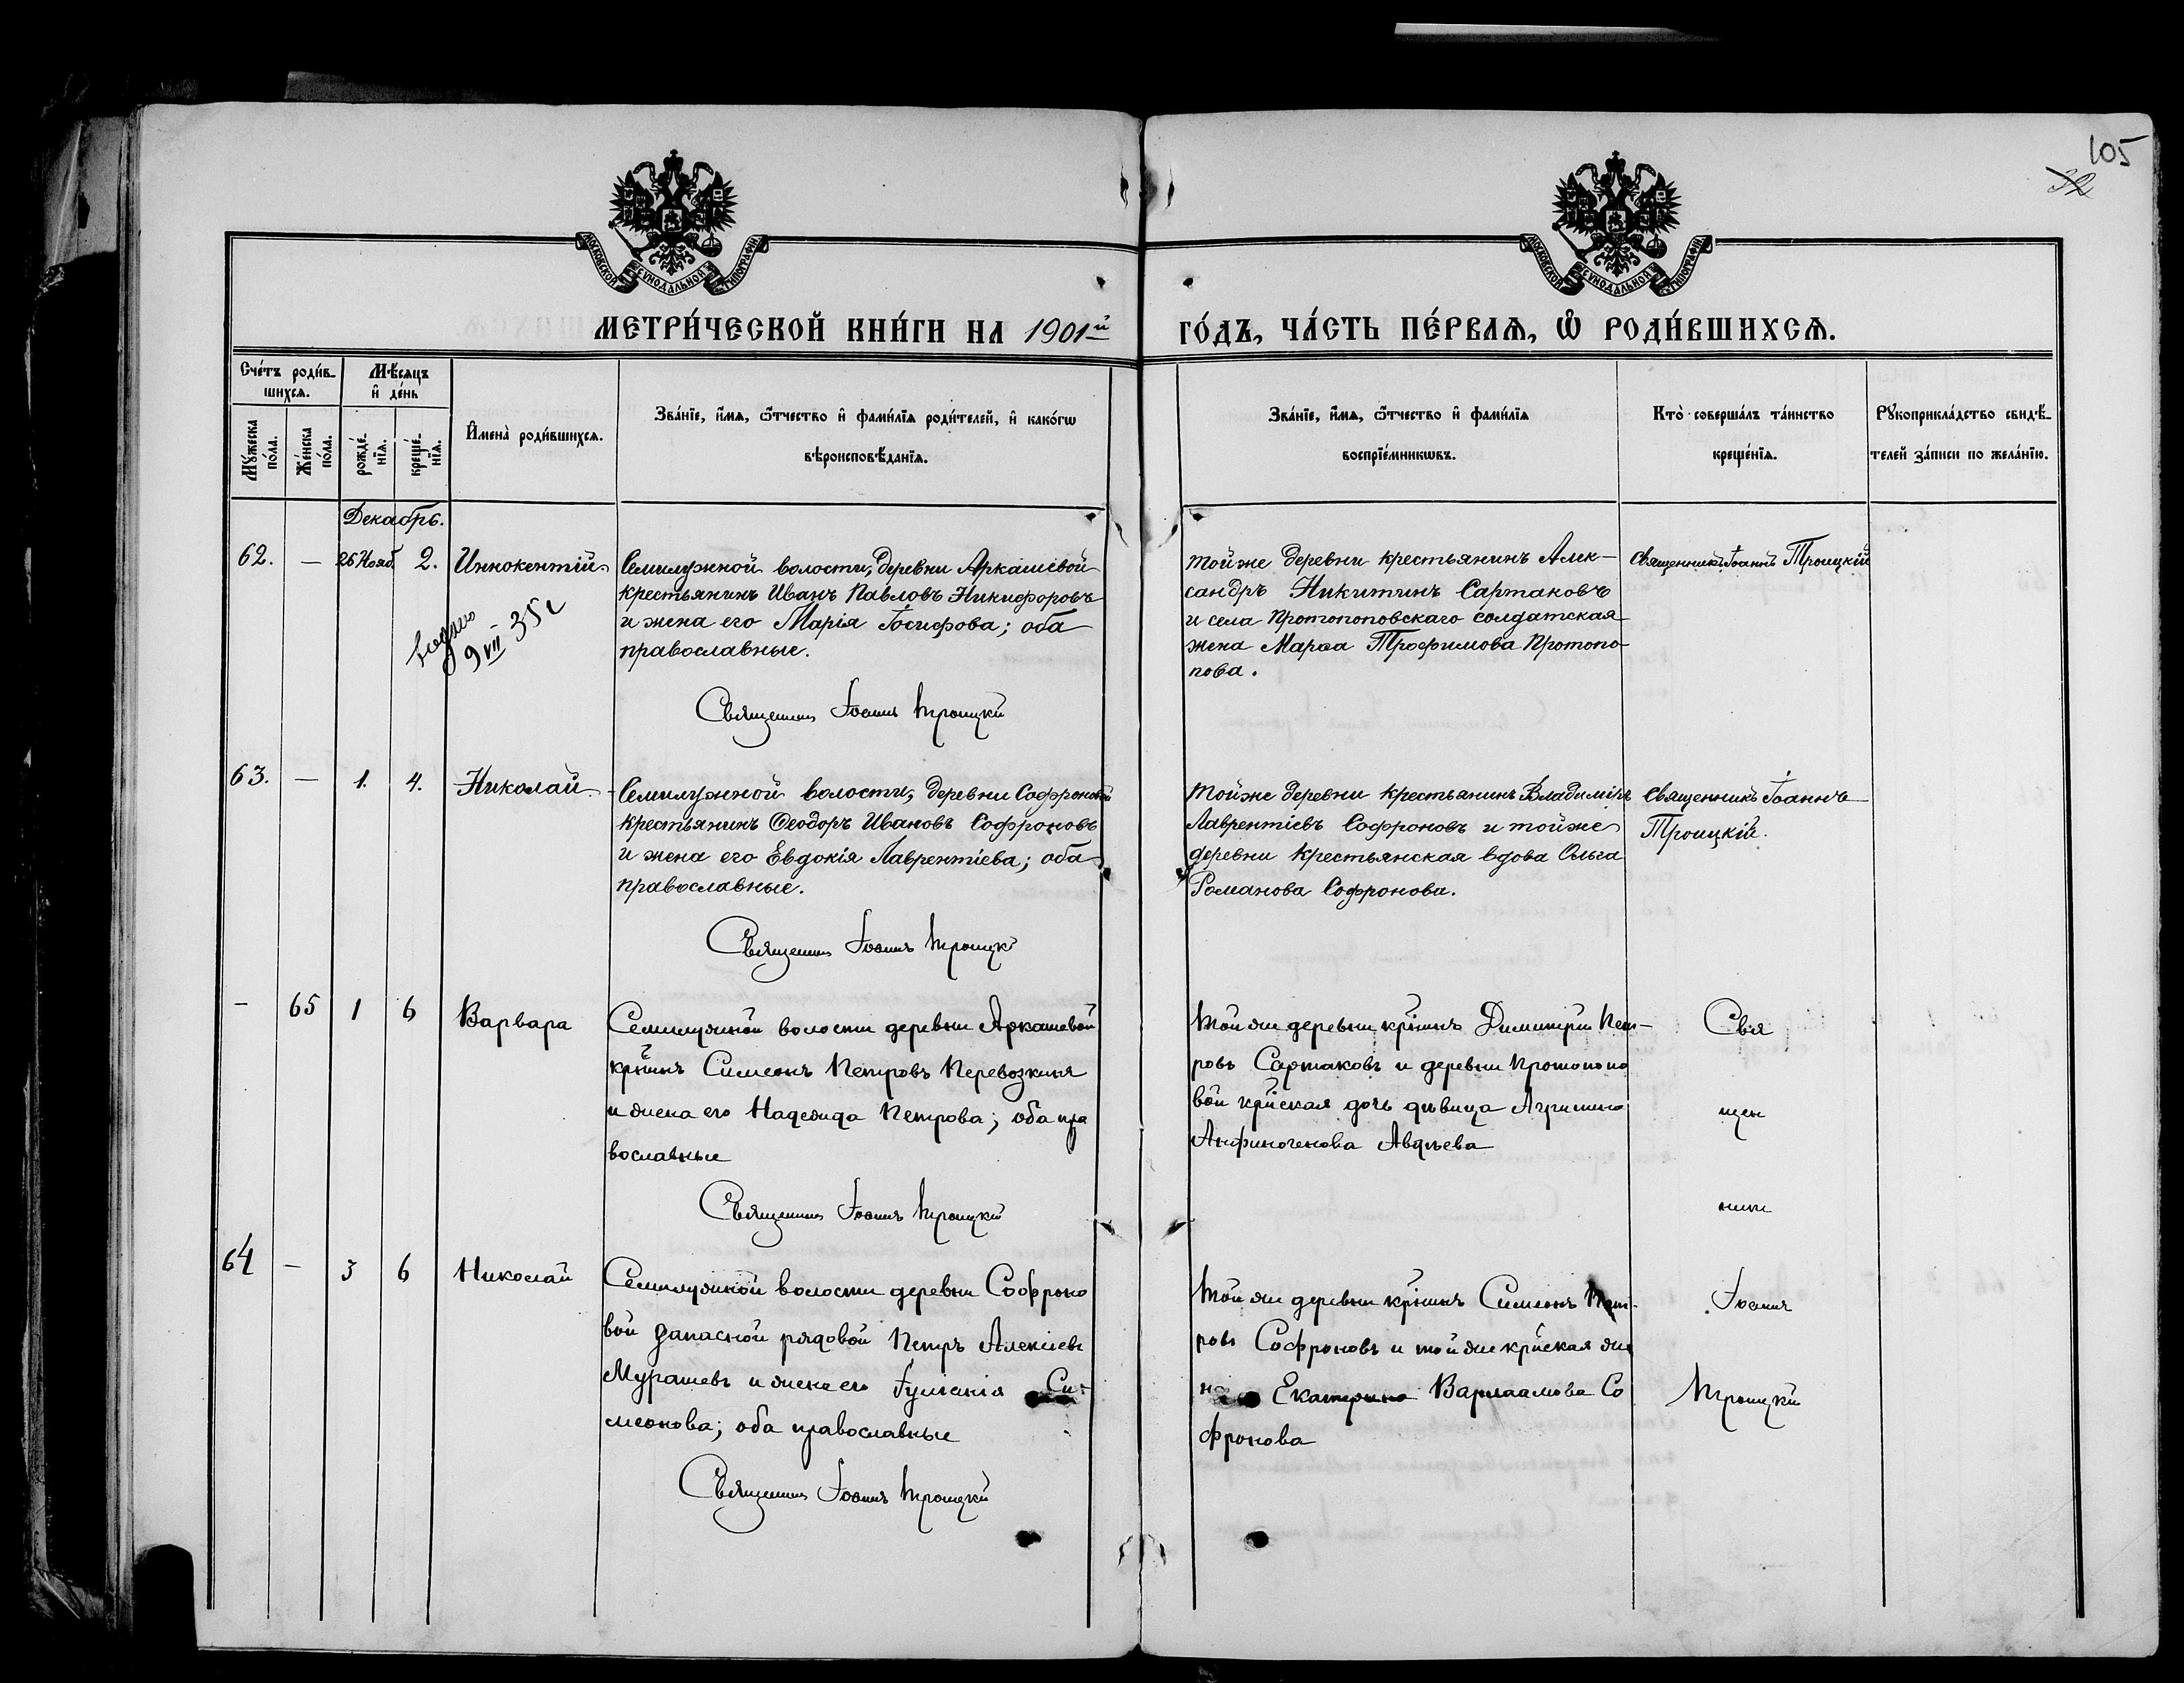 105
32
МОСКОВСКОЙ СѴНОДАЛЬНОЙ ТИПОГРАФІИ
МОСКОВСКОЙ СѴНОДАЛЬНОЙ ТИПОГРАФІИ
МЕТРИ́ЧЕСКОЙ КНИ́ГИ НА 1901й
ГО́ДЪ, ЧА́СТЬ ПЕ́РВАѦ, Ѽ РОДИ́ВШИХСѦ.
Сче́тъ роди́в-
шихсѧ.
Мꙋ́жеска по́ла.
Же́нска по́ла.
Мѣ́сяцъ
и҆ де́нь
рожде́-
нїѧ.
креще́-
нїѧ.
И҆мена̀ роди́вшихсѧ.
Зва́нїе, и҆́мѧ, ѻ҆́тчество и҆ фами́лїѧ роди́телей, и҆ како́гѡ
вѣроисповѣ́данїѧ.
Зва́нїе, и҆́мѧ, ѻ҆́тчество и҆ фами́лїѧ
воспрїе́мникѡвъ.
Кто̀ соверша́лъ та́инство
креще́нїѧ.
Рꙋкоприкла́дство свидѣ́-
телей за́писи по жела́нїю.
Декабрь.
62. — 26 Нояб. 2. Иннокентій.
Семилужной волости, деревни Аркашевой
крестьянинъ Иванъ Павловъ Никифоровъ
и жена его Марія Іосифова; оба
православные.
9 VII 35 г
Священникъ Іоаннъ Троицкій
тойже деревни крестьянинъ Алек-
сандръ Никитинъ Сартаковъ
и села Протопоповскаго солдатская
жена Марѳа Трофимова Протопо-
пова.
Священникъ Іоаннъ Троицкій
63. — 1. 4. Николай.
Семилужной волости, деревни Софроновой
крестьянинъ Ѳеодоръ Ивановъ Софроновъ
и жена его Евдокія Лаврентіева; оба
православные.
Священникъ Іоаннъ Троицкій
Тойже деревни крестьянинъ Владиміръ
Лаврентіевъ Софроновъ и тойже
деревни крестьянская вдова Ольга
Романова Софронова.
Священникъ Іоаннъ
Троицкій.
— 65 1 6 Варвара
Семилужной волости деревни Аркашевой
крнинъ Симеонъ Петровъ Перевозкинъ
и жена его Надежда Петрова; оба пра
вославные
Священникъ Іоаннъ Троицкій
Той же деревни крнинъ Димитрій Пет-
ровъ Сартаковъ и деревни Протопопо
вой крйская дочь дѣвица Агрипина
Анфиногенова Авдѣева
Свя
щен
никъ
64 — 3 6 Николай
Семилужной волости деревни Софроно
вой запасной рядовой Петръ Алексіевъ
Мурашевъ и жена его Іуліанія Си-
меонова; оба православные
Священникъ Іоаннъ Троицкій
Той же деревни крнинъ Симеонъ Пет-
ровъ Софроновъ и той же крйская же
на Екатерина Варлаамова Со
фронова
Іоаннъ
Троицкій